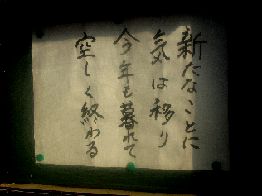 新たなことに
気は移り
今年も暮れて
空しく終わる